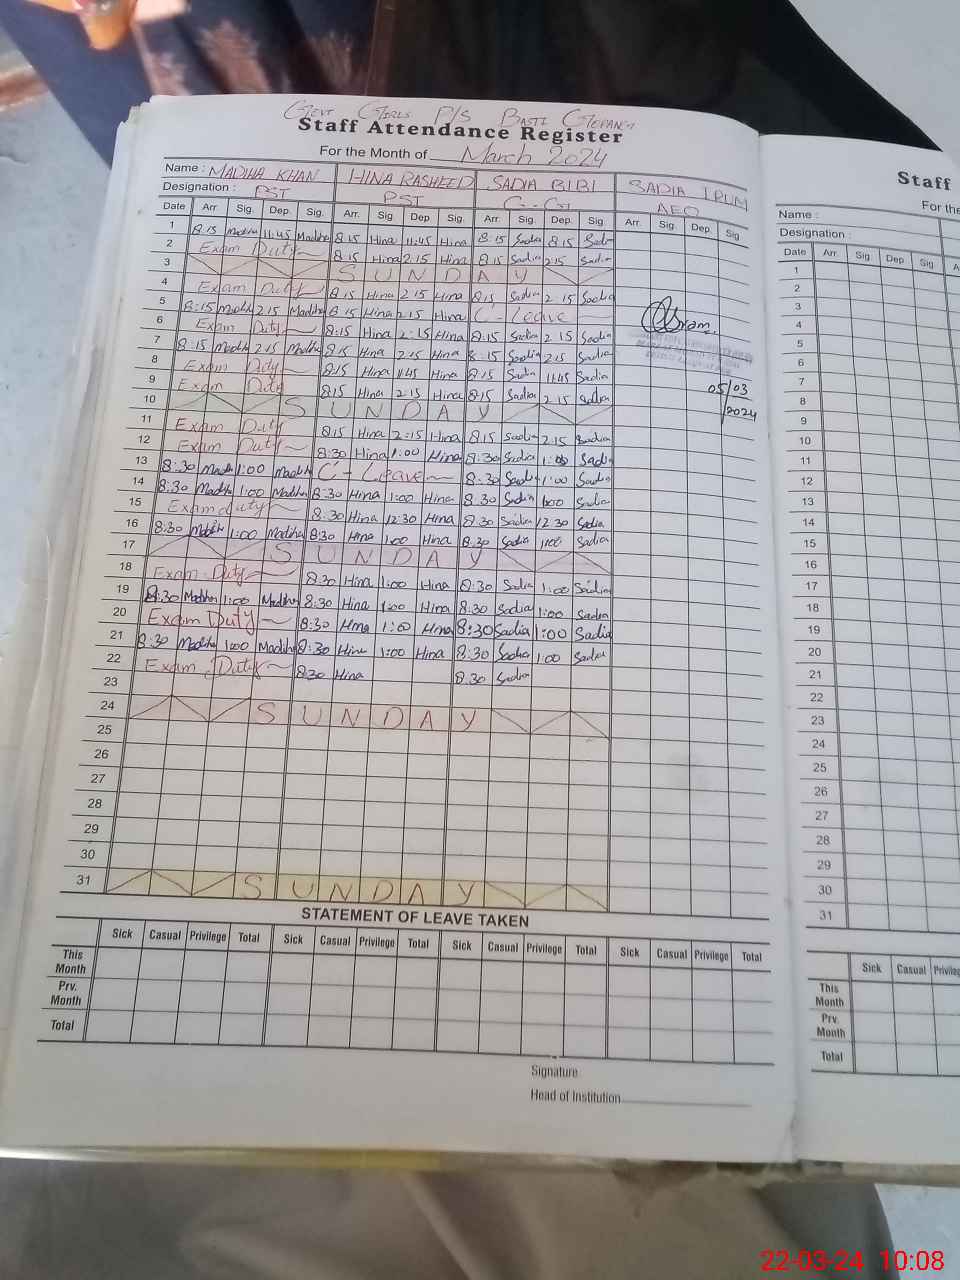 GOVT GIRLS P/S BASTI
Staff Attendance Register
For the Month of March 2024
Name : MADIHA KHAN HINA RASHEED SADIA BIBI SADIA IRUM
Designation : PST PST AEO
Date Arr. Sig. Dep. Sig. Arr. Sig Dep Sig. Arr. Sig. Dep. Sig Arr. Sig. Dep. Sig
1 8:15 Madiha 11:45 Madiha 8:15 Hina 11:45 Hina 8:15 Sadia 8:15 Sadia
2 Exam Duty 8:15 Hina 2:15 Hina 8:15 Sadia 2:15 Sadia
3 SUNDAY
4 Exam Duty 8:15 Hina 2:15 Hina 8:15 Sadia 2:15 Sadia
5 8:15 Madiha 2:15 Madiha 8:15 Hina 2:15 Hina C-Leave
6 Exam Duty 8:15 Hina 2:15 Hina 8:15 Sadia 2:15 Sadia
7 8:15 Madiha 2:15 Madiha 8:15 Hina 2:15 Hina 8:15 Sadia 2:15 Sadia
8 Exam Duty 8:15 Hina 11:45 Hina 8:15 Sadia 11:45 Sadia
9 Exam Duty 8:15 Hina 2:15 Hina 8:15 Sadia 2:15 Sadia
10 SUNDAY
11 Exam Duty 8:15 Hina 2:15 Hina 8:15 Sadia 2:15 Sadia
12 Exam Duty 8:30 Hina 1:00 Hina 8:30 Sadia 1:00 Sadia
13 8:30 Madiha 1:00 Madiha C-Leave 8:30 Sadia 1:00 Sadia
14 8:30 Madiha 1:00 Madiha 8:30 Hina 1:00 Hina 8:30 Sadia 1:00 Sadia
15 Exam duty 8:30 Hina 12:30 Hina 8:30 Sadia 12:30 Sadia
16 8:30 Madiha 1:00 Madiha 8:30 Hina 1:00 Hina 8:30 Sadia 1:00 Sadia
17 SUNDAY
18 Exam Duty 8:30 Hina 1:00 Hina 8:30 Sadia 1:00 Sadia
19 8:30 Madiha 1:00 Madiha 8:30 Hina 1:00 Hina 8:30 Sadia 1:00 Sadia
20 Exam Duty 8:30 Hina 1:00 Hina 8:30 Sadia 1:00 Sadia
21 8:30 Madiha 1:00 Madiha 8:30 Hina 1:00 Hina 8:30 Sadia 1:00 Sadia
22 Exam Duty 8:30 Hina 8:30 Sadia
23
24 SUNDAY
25
26
27
28
29
30
31 SUNDAY
05/03
2024
STATEMENT OF LEAVE TAKEN
Sick Casual Privilege Total Sick Casual Privilege Total Sick Casual Privilege Total Sick Casual Privilege Total
This Month
Prv. Month
Total
Signature
Head of Institution
Staff
For the
Name :
Designation :
Date Arr. Sig. Dep. Sig. A
1
2
3
4
5
6
7
8
9
10
11
12
13
14
15
16
17
18
19
20
21
22
23
24
25
26
27
28
29
30
31
Sick Casual Privileg
This Month
Prv. Month
Total
22-03-24 10:08